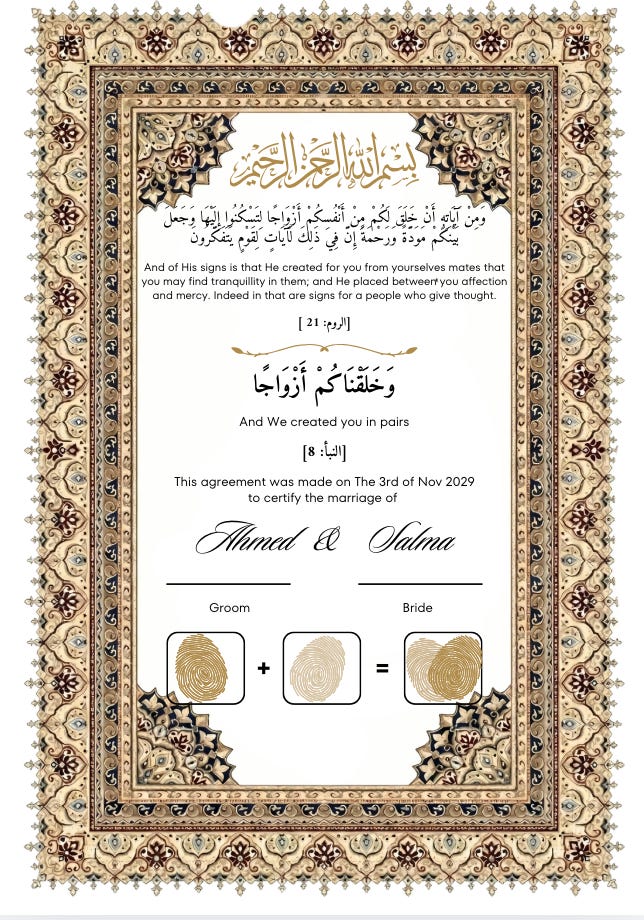 بسم الله الرحمن الرحيم
وَمِنْ آيَاتِهِ أَنْ خَلَقَ لَكُمْ مِنْ أَنْفُسِكُمْ أَزْوَاجًا لِتَسْكُنُوا إِلَيْهَا وَجَعَلَ
بَيْنَكُمْ مَوَدَّةً وَرَحْمَةً إِنَّ فِي ذَلِكَ لَآيَاتٍ لِقَوْمٍ يَتَفَكَّرُونَ
And of His signs is that He created for you from yourselves mates that
you may find tranquillity in them; and He placed between you affection
and mercy. Indeed in that are signs for a people who give thought.
[الروم: 21 ]
وَخَلَقْنَاكُمْ أَزْوَاجًا
And We created you in pairs
[النبأ: 8]
This agreement was made on The 3rd of Nov 2029
to certify the marriage of
Ahmed & Salma
Groom Bride
+ =